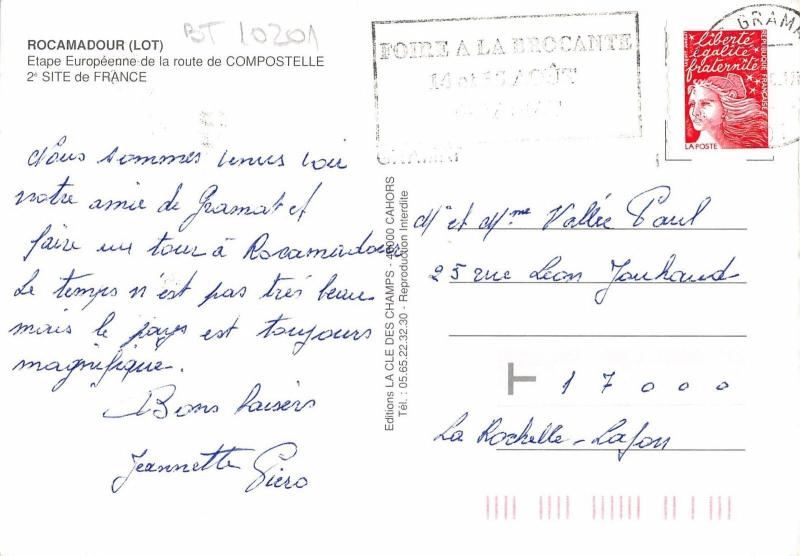 BT 10201
ROCAMADOUR (LOT)
Etape Européenne de la route de COMPOSTELLE
2e SITE de FRANCE
FOIRE A LA BROCANTE
14 et 15 AOÛT
GRAMAT
GRAMA
liberté
égalité
fraternité
REPUBLIQUE FRANÇAISE
LA POSTE
Nous sommes venus voir
notre amie de Gramat et
faire un tour à Rocamadour
Le temps n'est pas très beau
mais le pays est toujours
magnifique.
Bons baisers
Jeannette Piero
Editions LA CLE DES CHAMPS - 46000 CAHORS
Tél. : 05.65.22.32.30 - Reproduction Interdite
Mr et Mme Vallée Paul
25 rue Léon Jouhaud
T 17000
La Rochelle-Lafon